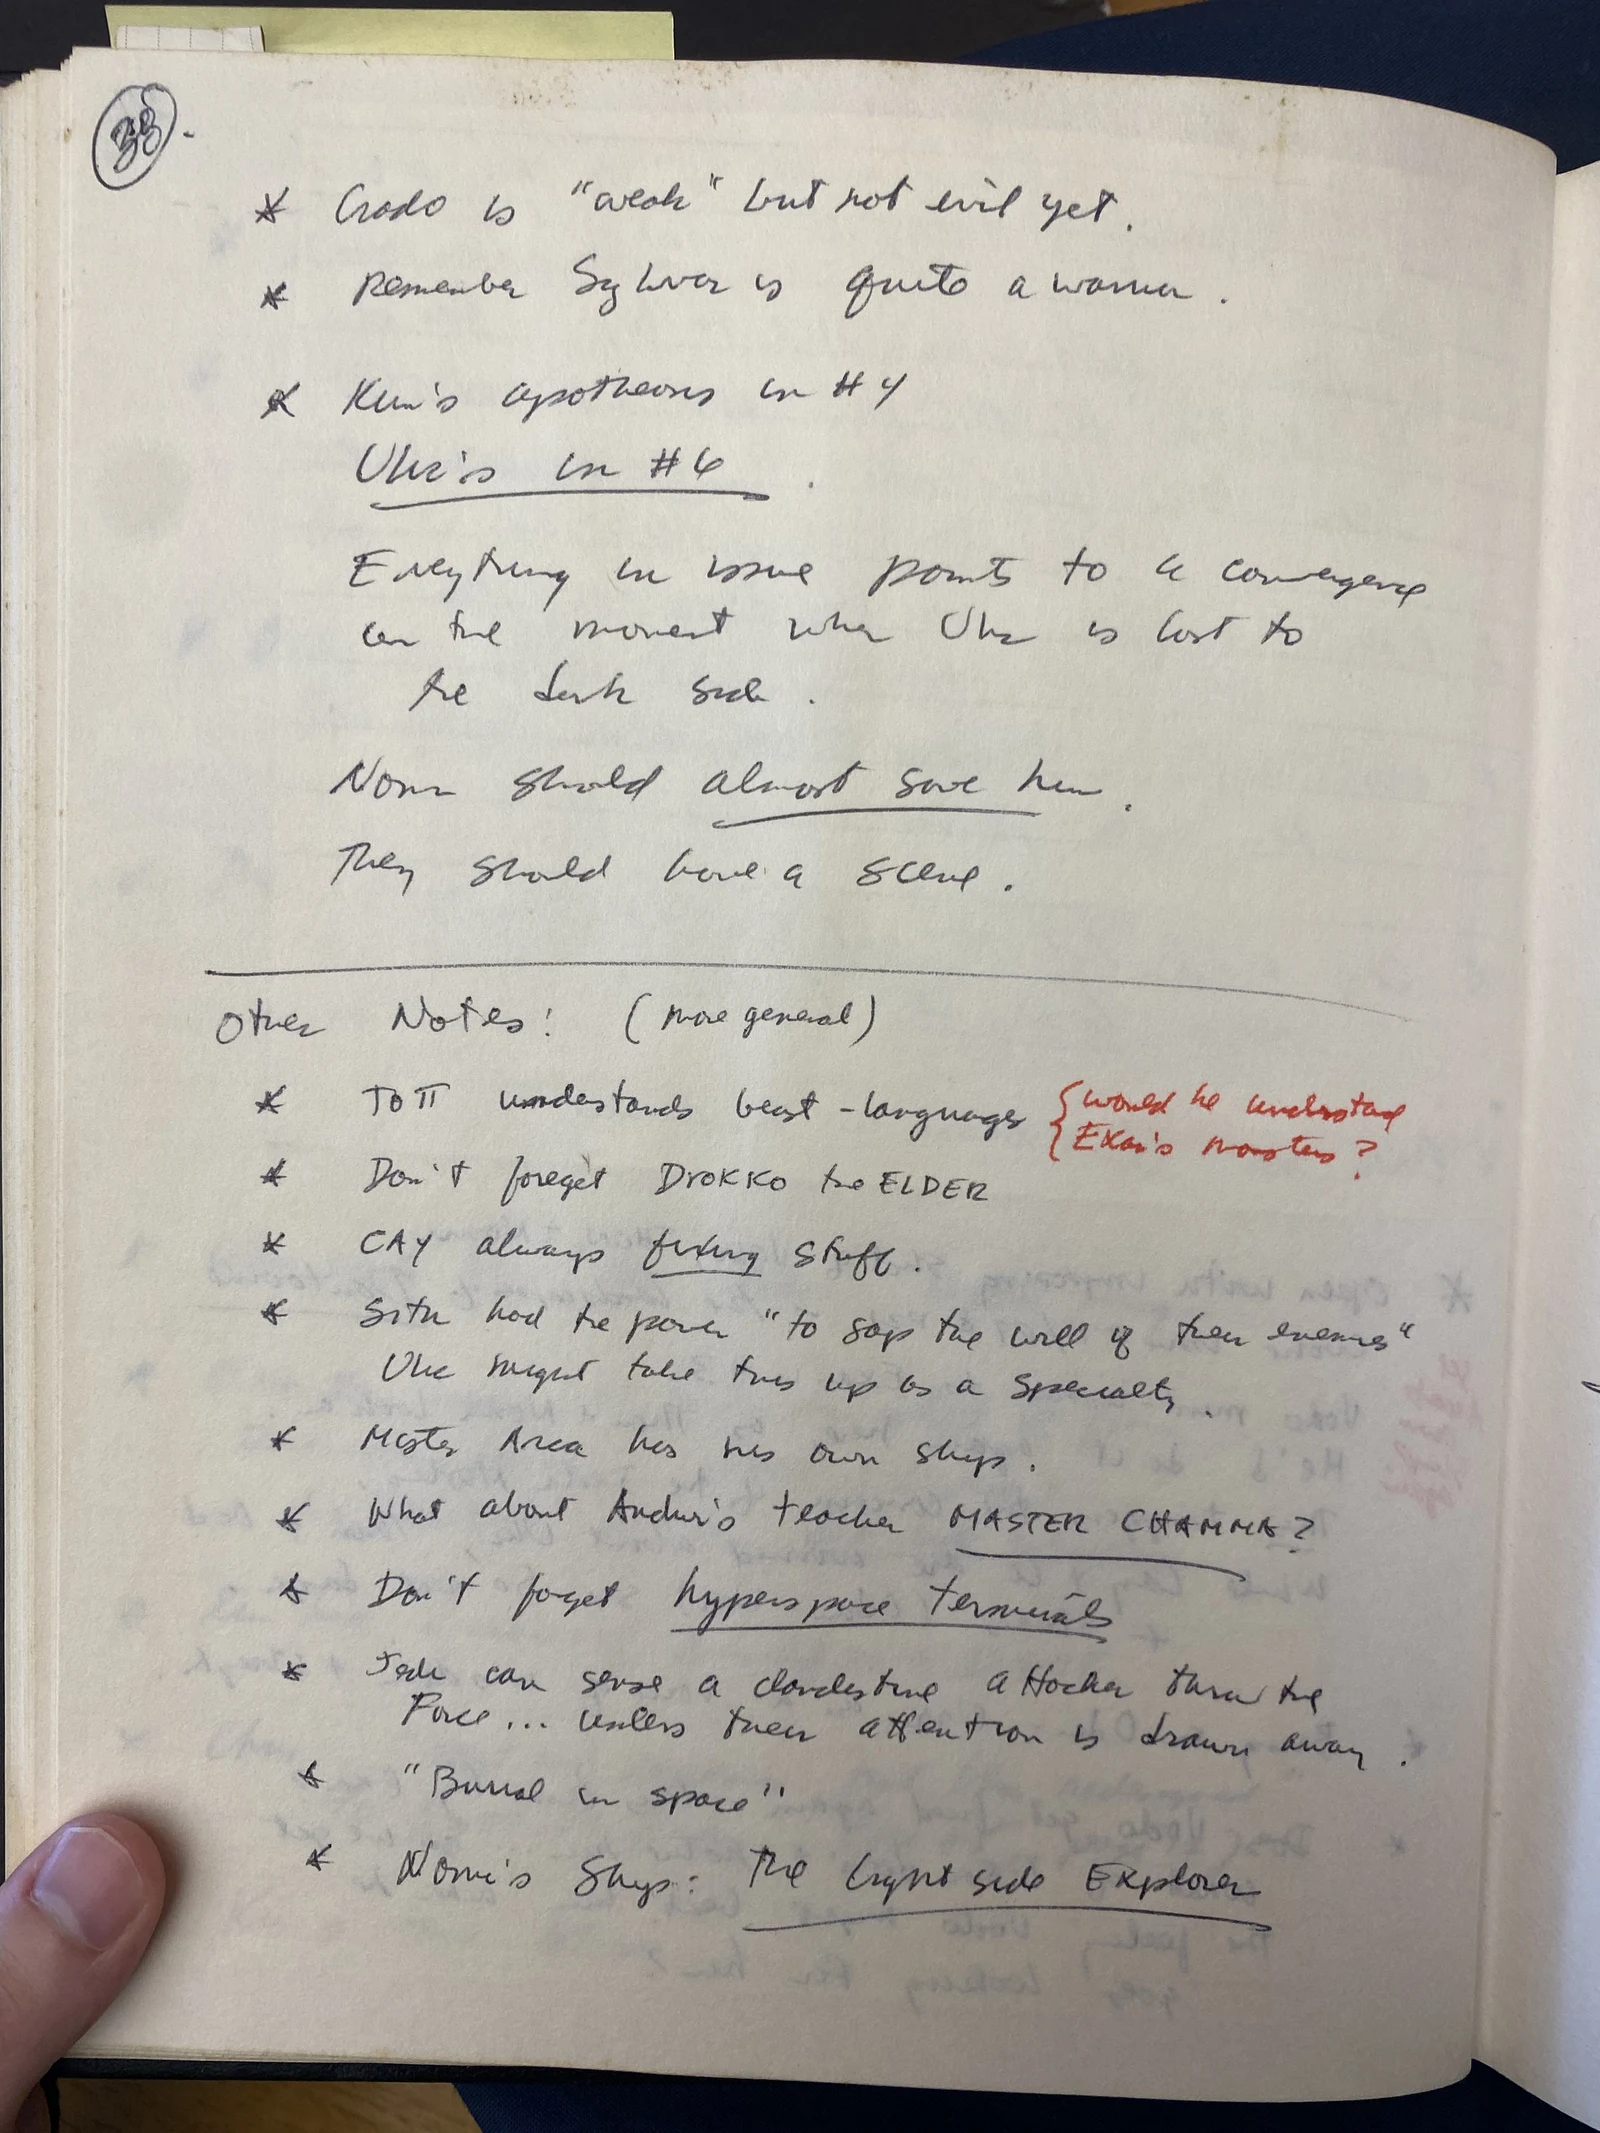 38.
* Crado is "weak" but not evil yet.
* Remember Sylvar is quite a warrior.
* Kun's apotheosis in #4
Ulic's in #6.
Everything in issue points to a convergence
on the moment when Ulic is lost to
the dark side.
Nomi should almost save him.
They should have a scene.
Other Notes: (more general)
* TOTT understands beast-languages {would he understand
{Exar's monsters?
* Don't foreget DROKKO the ELDER
* CAY always fixing stuff.
* Sith had the power "to sap the will of their enemies"
Ulic might take this up as a specialty.
* Master Arca has his own ship.
* What about Andur's teacher MASTER CHAMMA?
* Don't forget hyperspace terminals
* Jedi can sense a clandestine attacker thru the
Force... unless their attention is drawn away.
* "Burial in space"
* Nomi's Ship: The Lightside Explorer